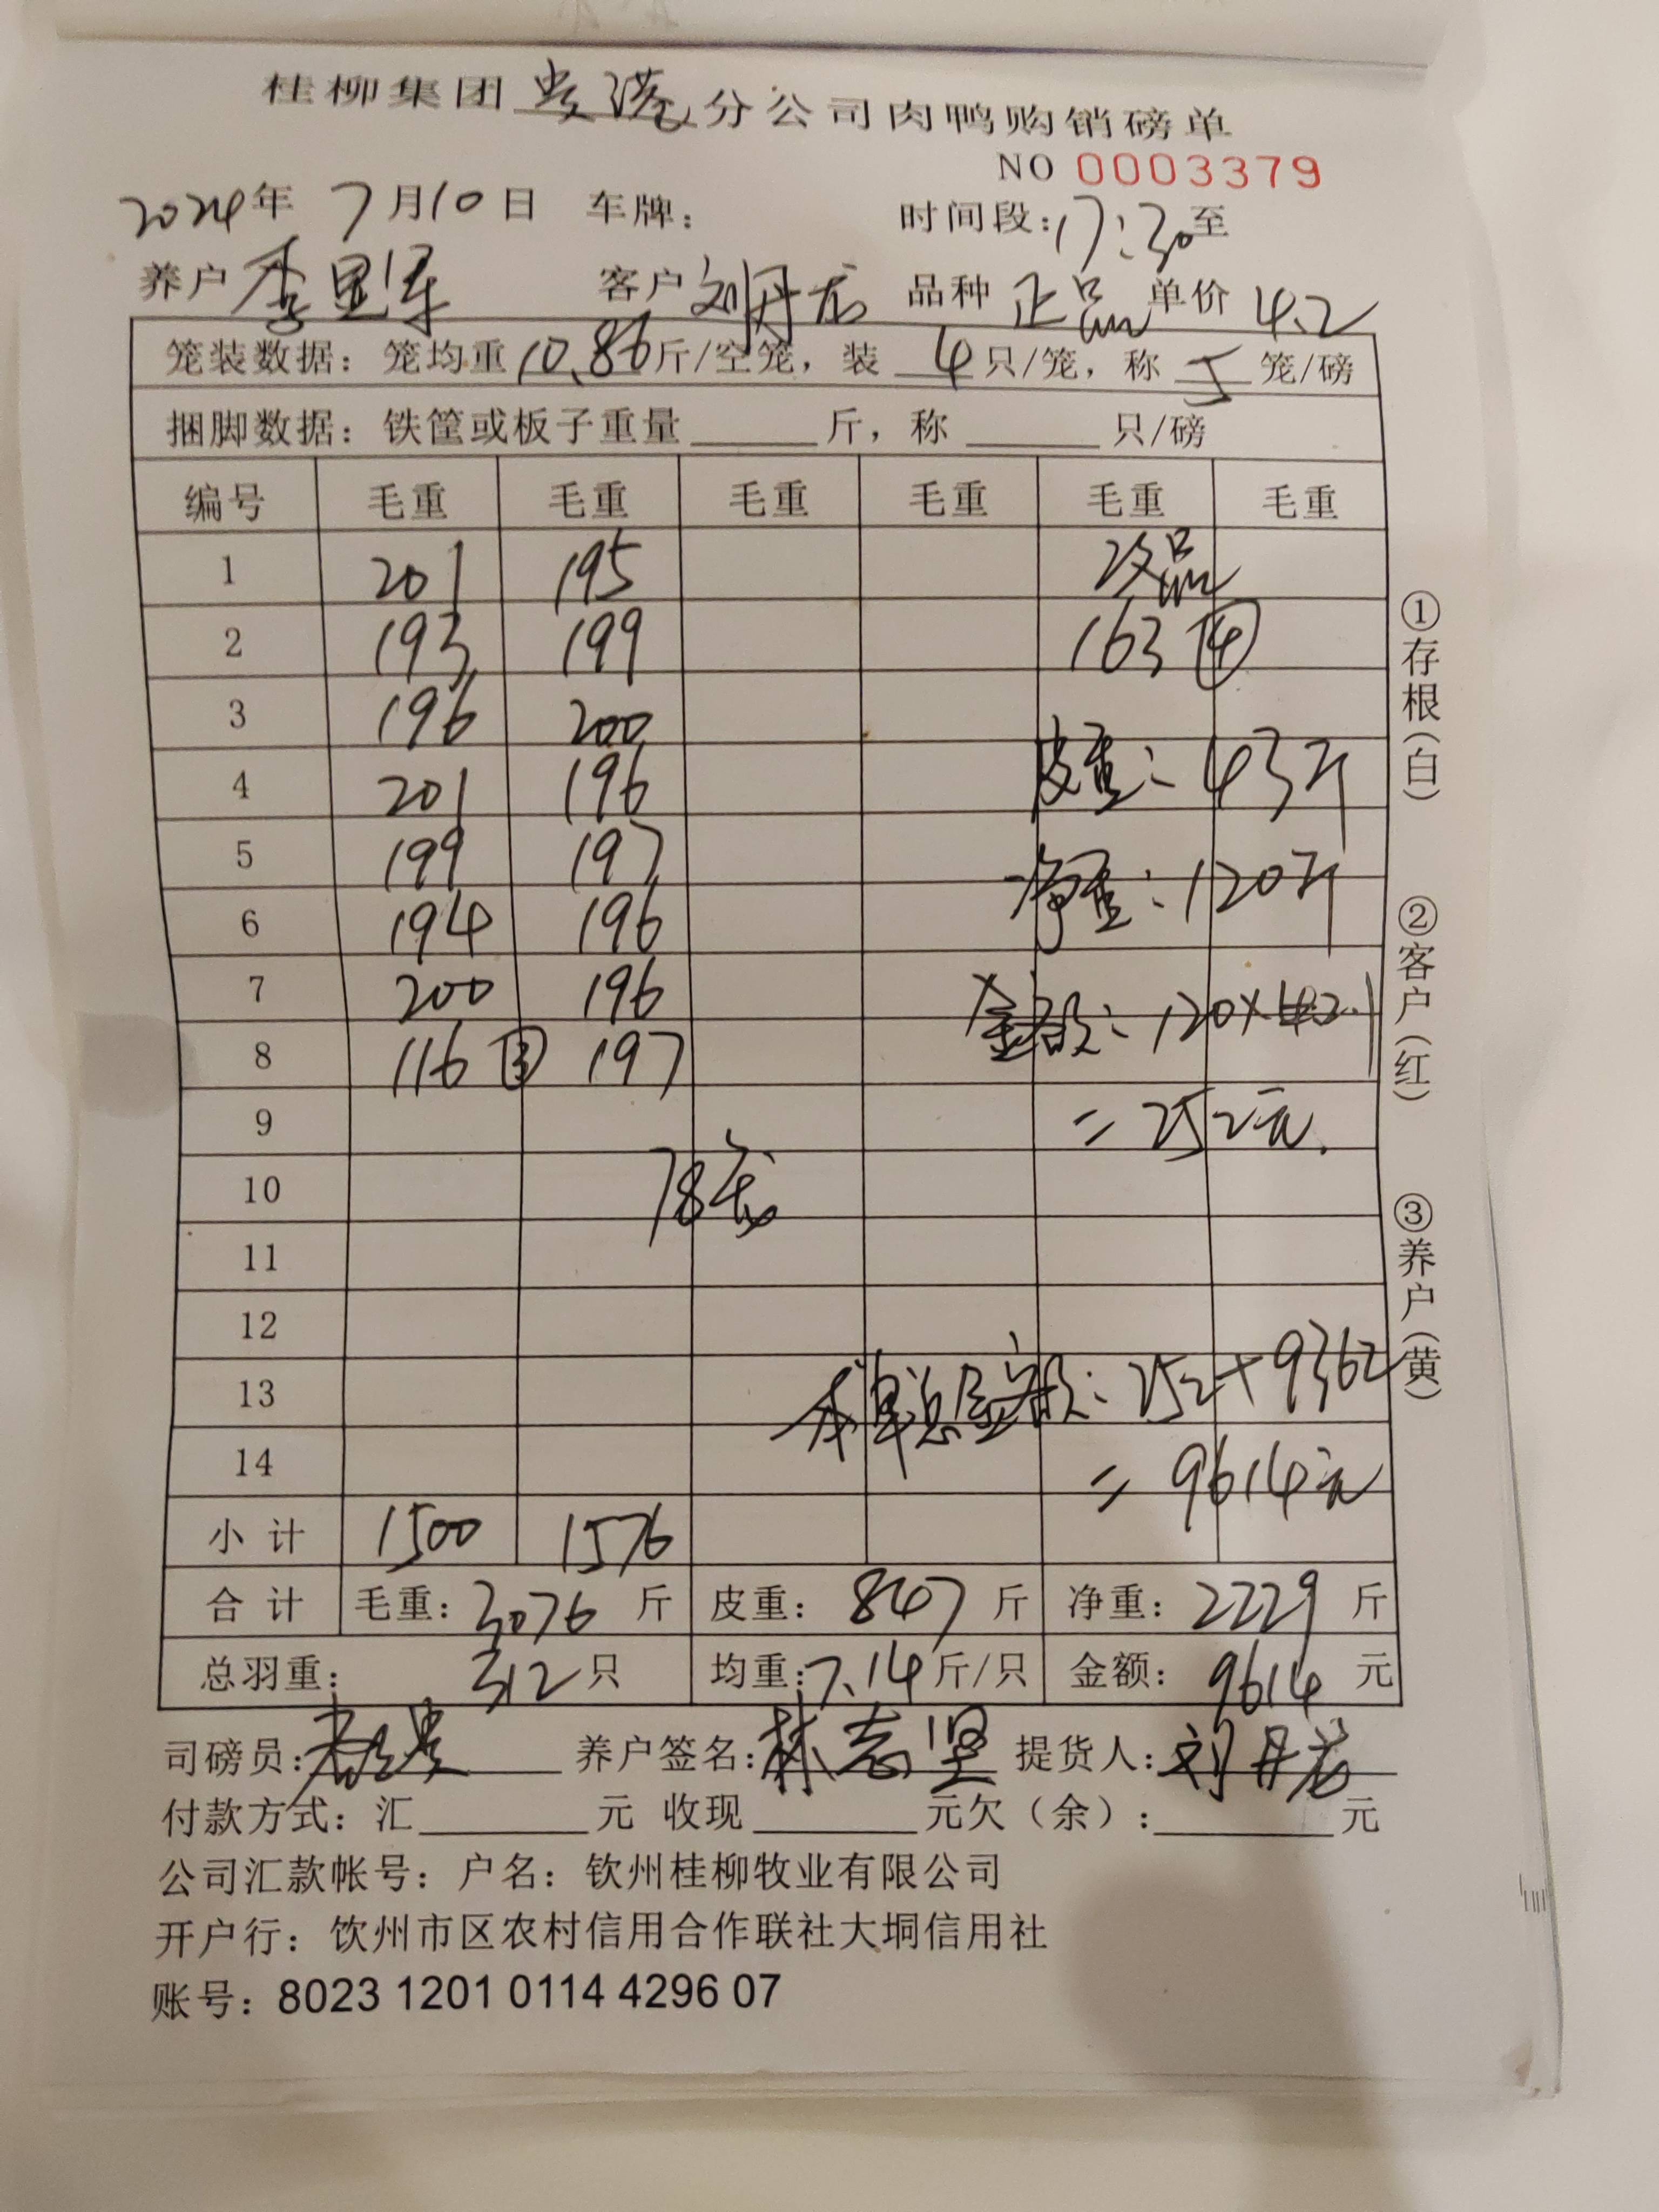 桂柳集团贵港分公司肉鸭购销磅单
NO 0003379
2024年 7月10日 车牌: 时间段:17:30至
养户 李 客户 刘丹 品种 正品 单价 4.2
笼装数据: 笼均重10.86斤/空笼, 装 4 只/笼, 称 5 笼/磅
捆脚数据: 铁筐或板子重量 斤, 称 只/磅
编号 毛重 毛重 毛重 毛重 毛重 毛重
1 201 195 次品
2 193 199 163 ④
3 196 200
4 201 196 皮重: 43斤
5 199 197 净重: 120斤
6 194 196
7 200 196 金额: 120×2.1
8 116 ③ 197
9 = 252元.
10 78笼
11
12
13 本单总金额: 252+9362
14 = 9614元
小计 1500 1576
合计 毛重: 3076 斤 皮重: 847 斤 净重: 2229 斤
总羽重: 312 只 均重: 7.14 斤/只 金额: 9614 元
司磅员: 养户签名: 林志坚 提货人: 刘丹
付款方式: 汇 元 收现 元欠(余): 元
公司汇款帐号: 户名: 钦州桂柳牧业有限公司
开户行: 饮州市区农村信用合作联社大垌信用社
账号: 8023 1201 0114 4296 07
①存根(白) ②客户(红) ③养户(黄)